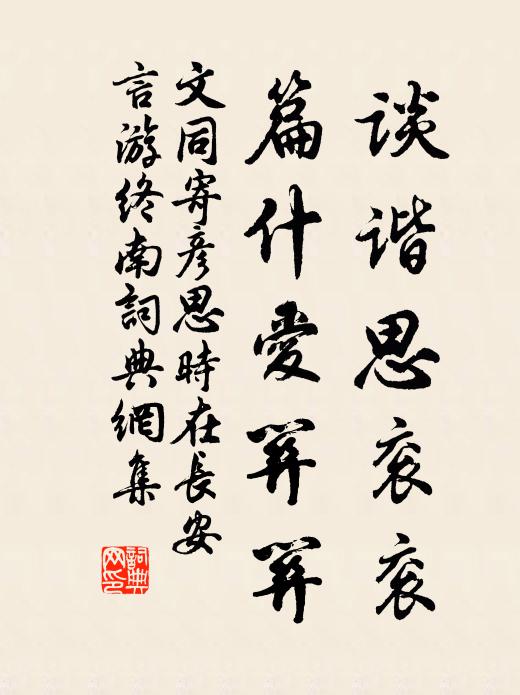 谈谐思衮衮
篇什愛
文同寄彦思時在長安
言游终南詞典網集
詞典
网印